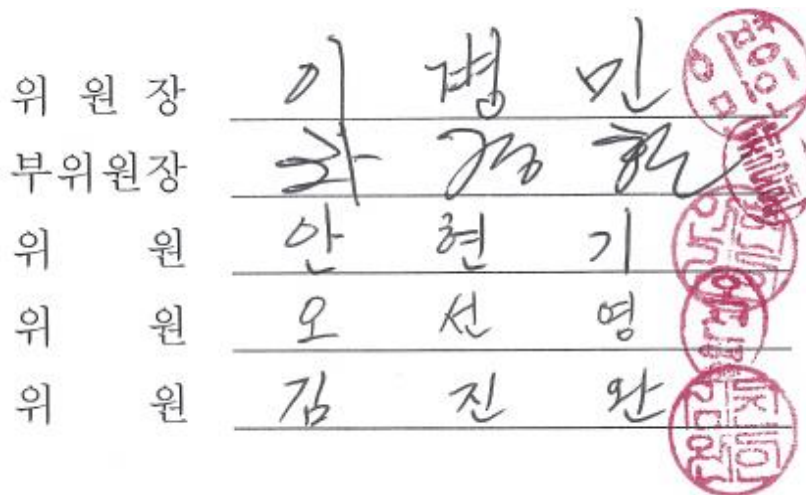 위 원 장 이 병 민
부위원장
위 원 안 현 기
위 원 오 선 영
위 원 김 진 완